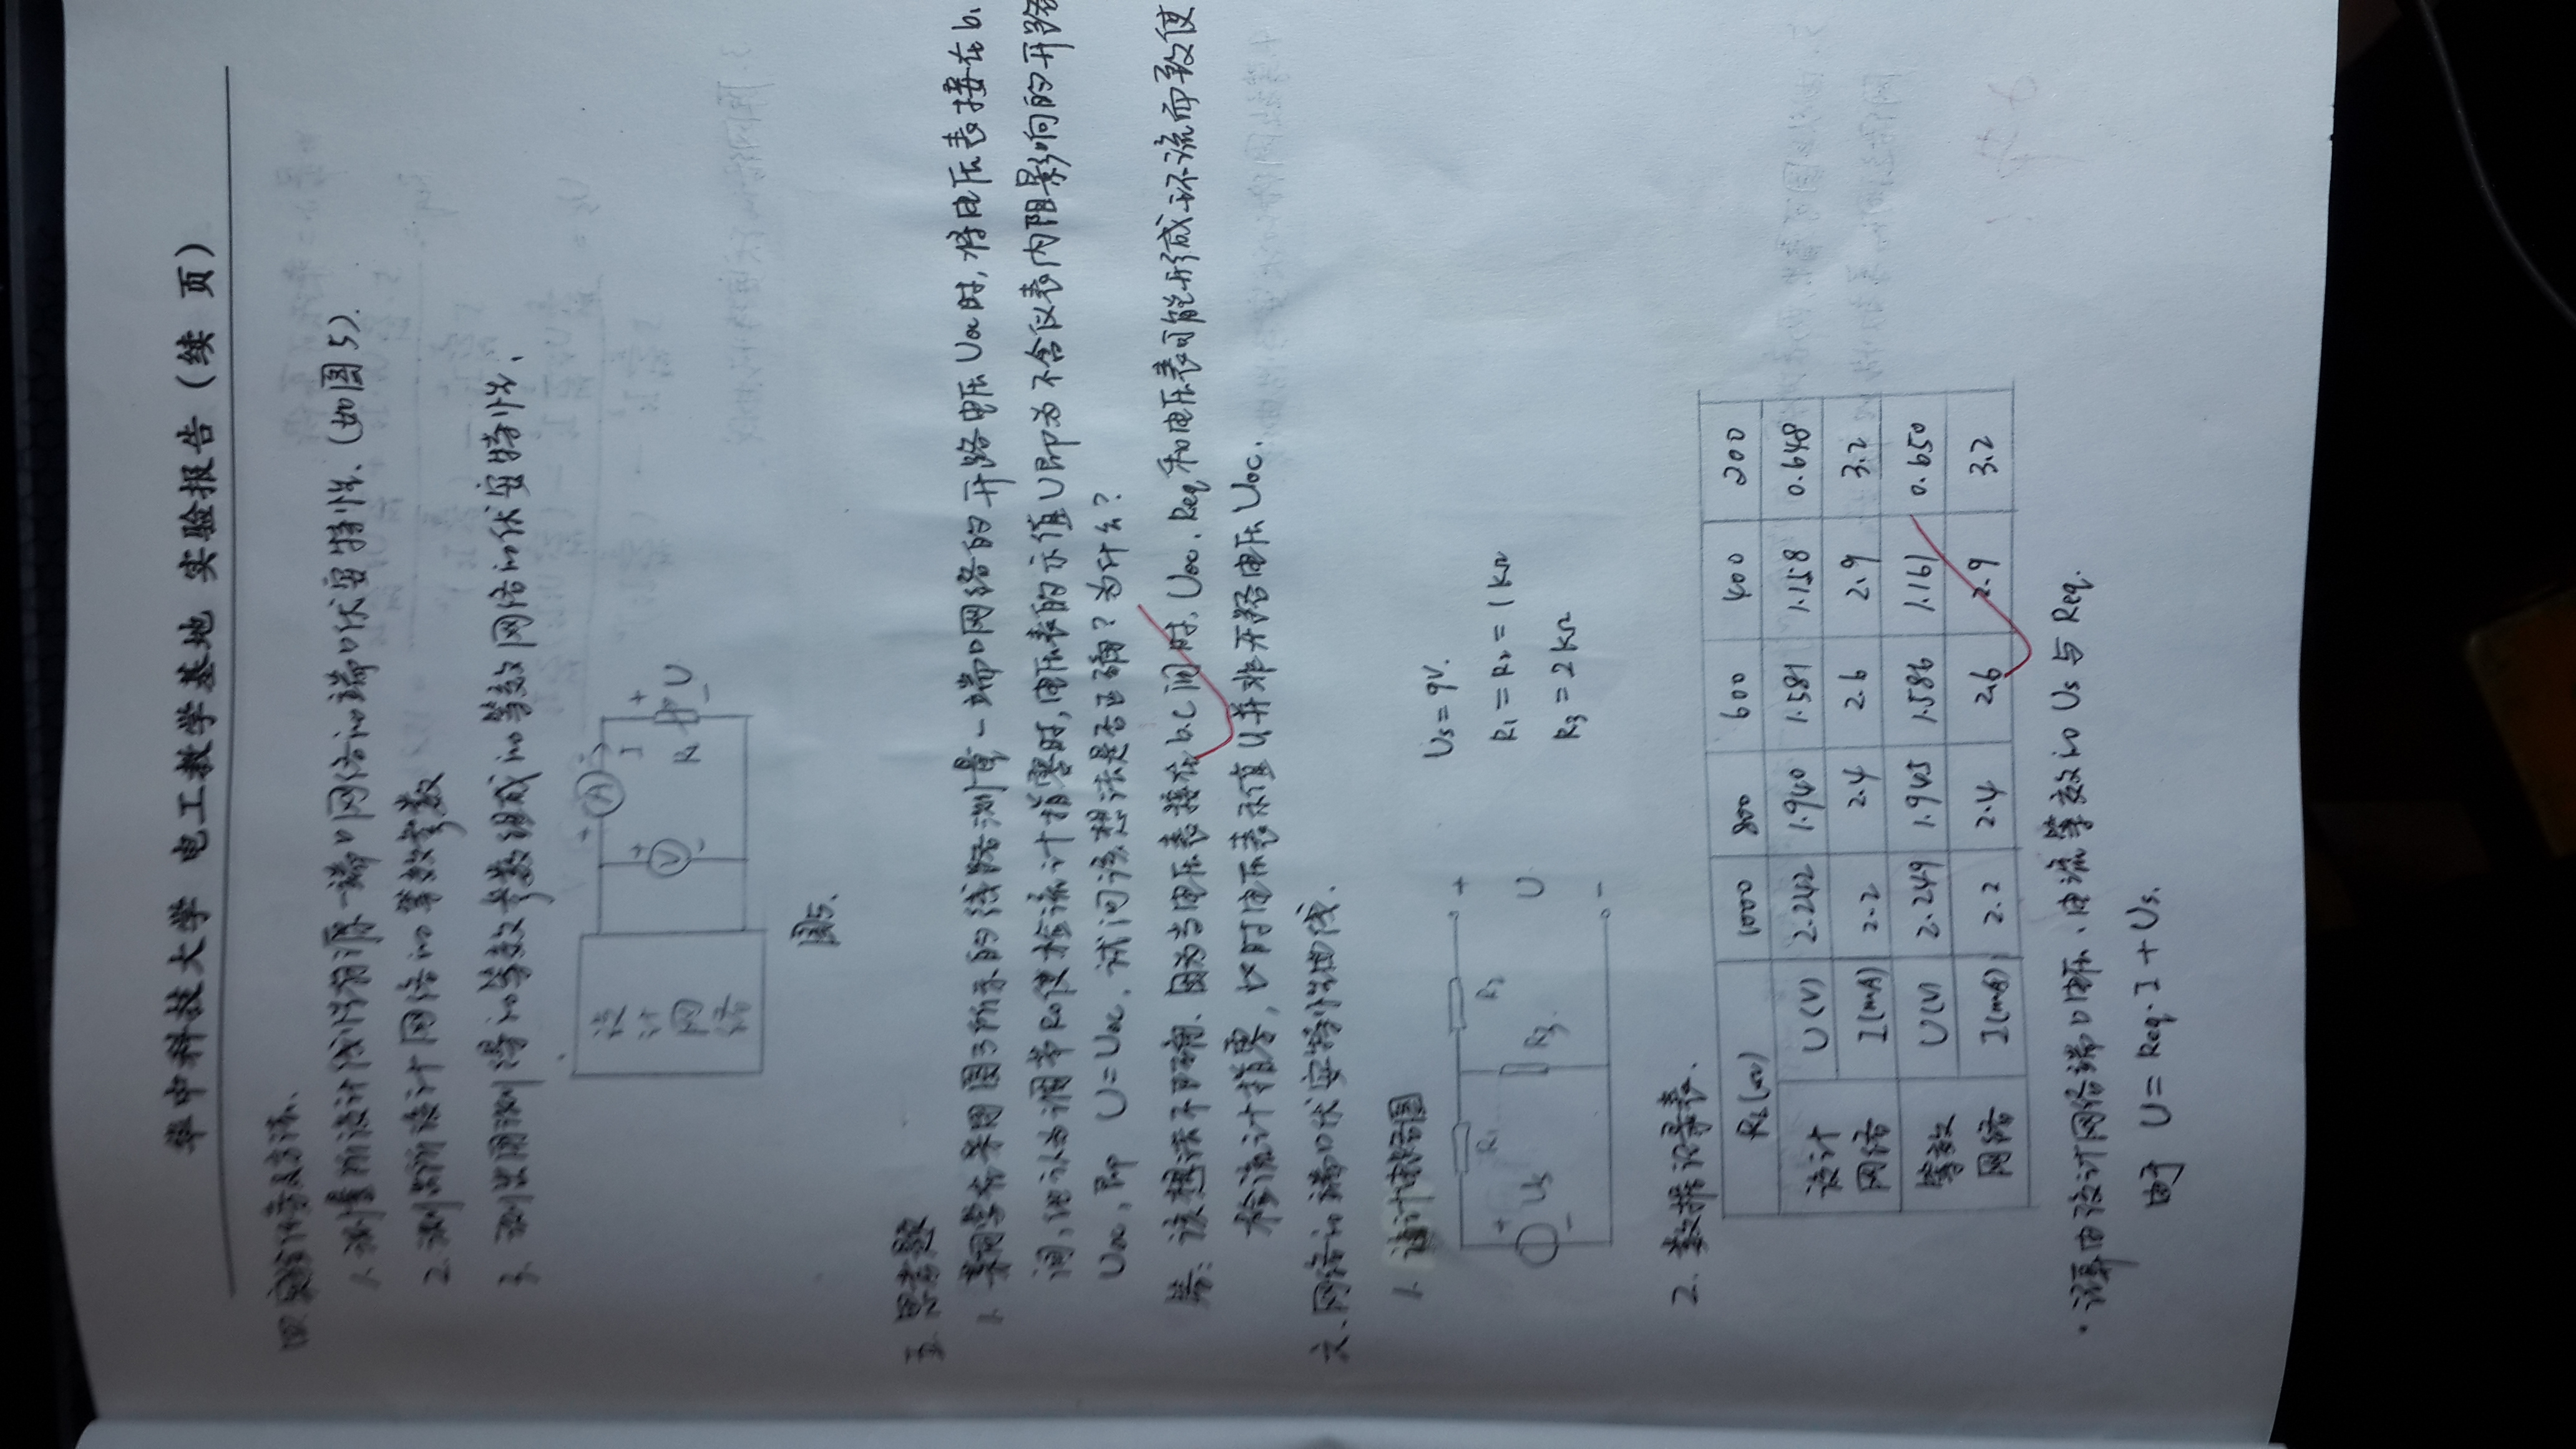 华中科技大学 电工教学基地 实验报告（续 页）
四.实验任务及方法.
1. 测量所设计线性有源一端口网络的端口伏安特性.（如图5）.
2. 测出所设计网络的等效参数
3. 测出用测得的等效参数组成的等效网络的伏安特性.
设计网络
+ A - I
+ V -
RL + U -
图5.
五.思考题
1. 某同学在采用图3所示的线路测量一端口网络的开路电压Uoc时,将电压表接在b.
间,他认为调节R0使检流计指零时,电压表的示值U即为不含仪表内阻影响的开路
Uoc,即 U=Uoc,试问该想法是否正确?为什么?
答:该想法不正确.因为当电压表接在b.c间时,Uoc.Req和电压表可能形成环流而致使
检流计指零,此时电压表示值U并非开路电压Uoc.
六.网络的端口伏安特性曲线.
1. 设计电路图
R1 R2 +
+ Us - R3. U
-
Us=9V.
R1=R2=1KΩ
R3=2KΩ
2. 数据记录表.
RL(Ω) 1000 800 600 400 200
设计网络 U(V) 2.242 1.940 1.581 1.158 0.648
I(mA) 2.2 2.4 2.6 2.9 3.2
等效网络 U(V) 2.249 1.945 1.586 1.161 0.650
I(mA) 2.2 2.4 2.6 2.9 3.2
·计算由设计网络端口电压、电流等效的Us与Req.
由于 U=Req·I+Us.